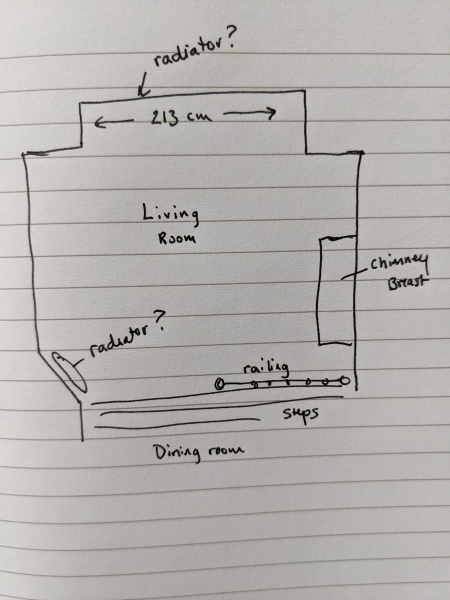 radiator?
213 cm
Living
Room
Chimney
Breast
radiator?
railing
steps
Dining room